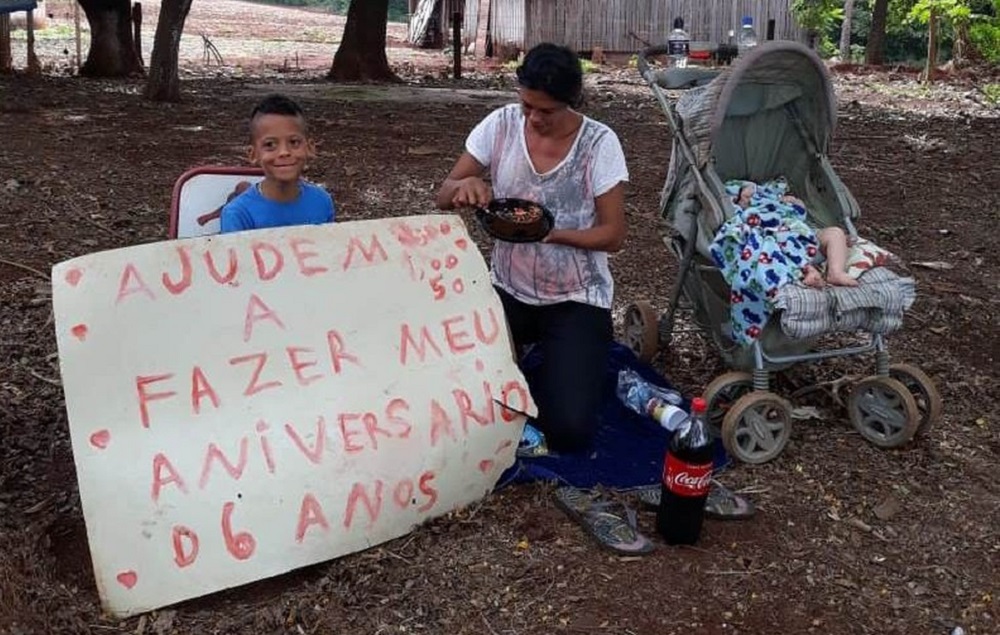 AJUDEM
1,00
50
A
FAZER MEU
ANIVERSARIO
D6 ANOS
Coca-Cola